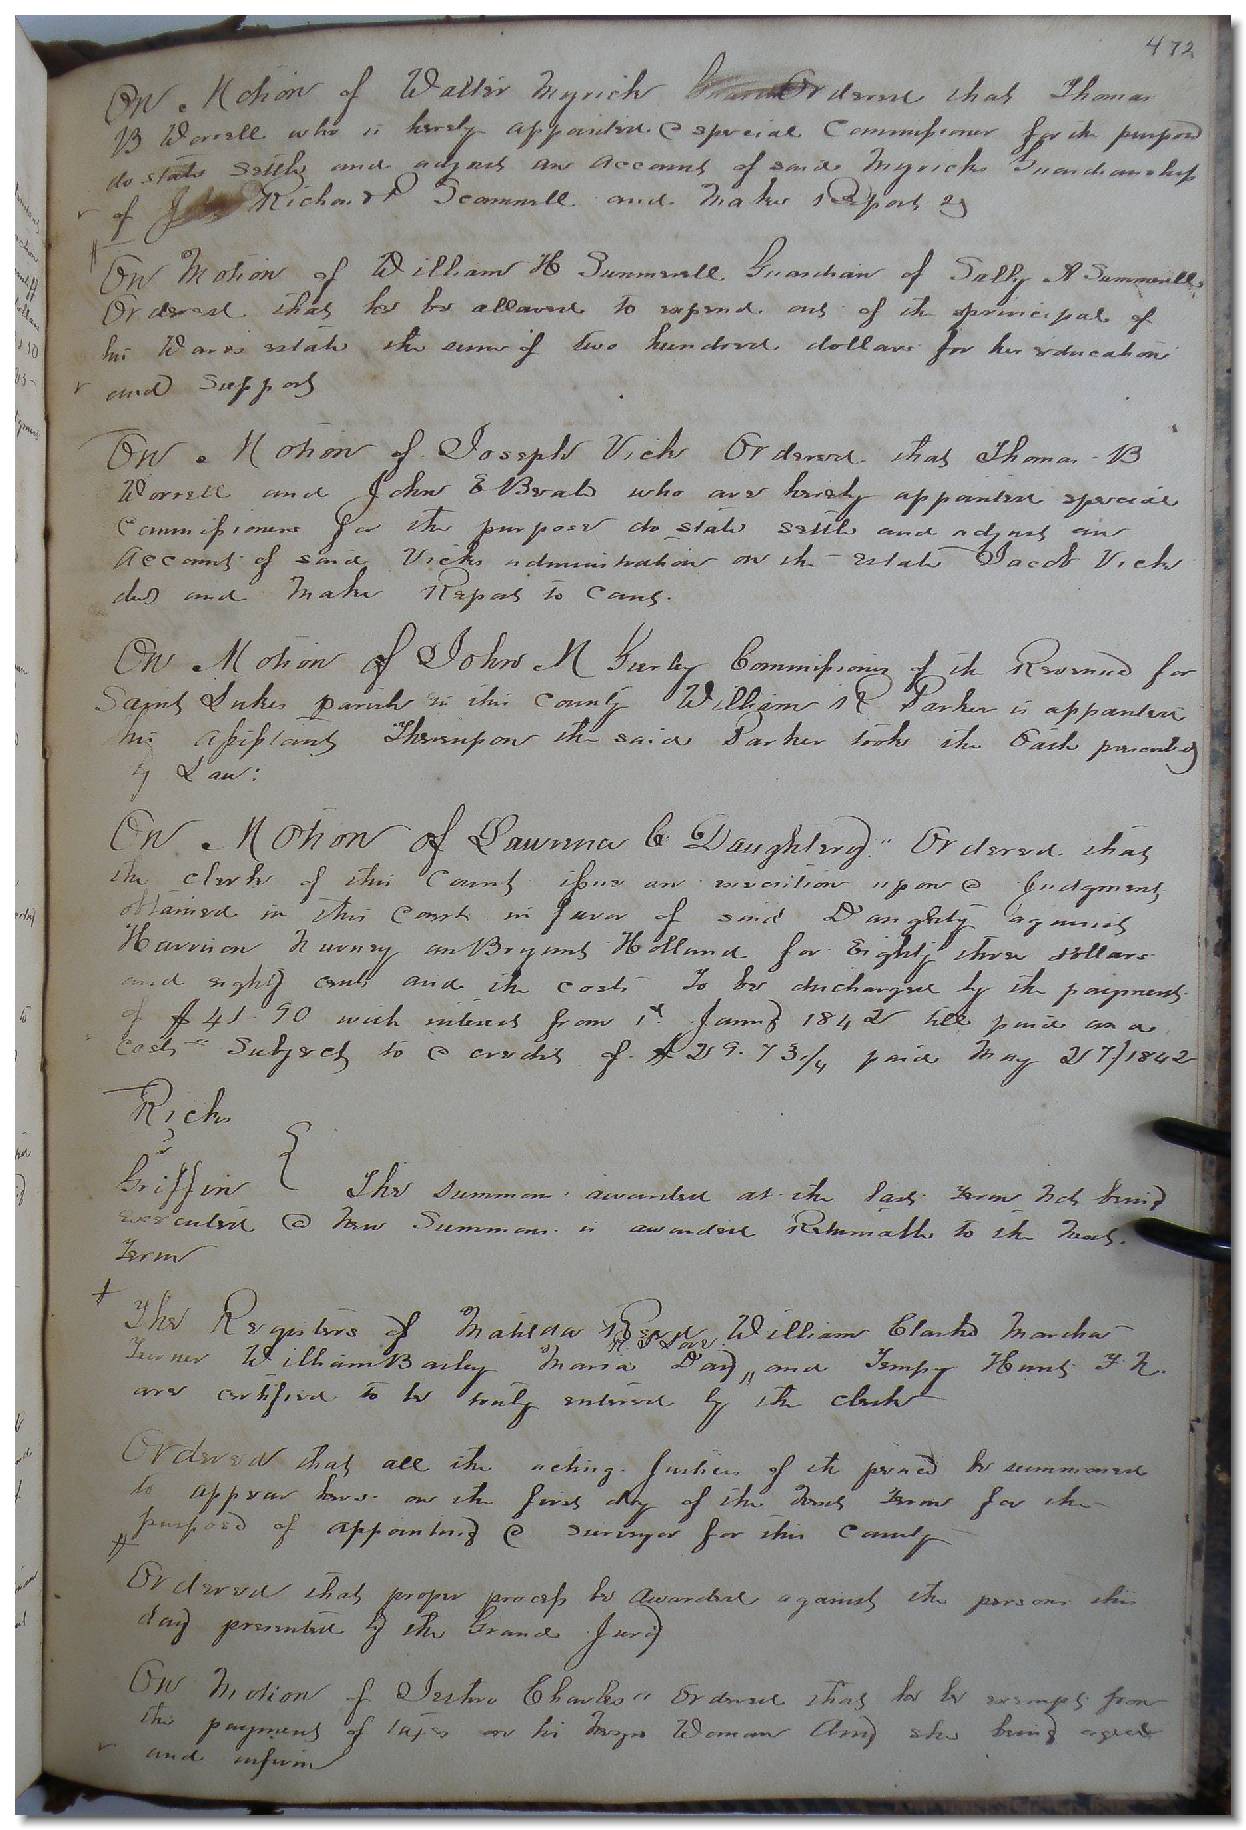 472
On Motion of Walter Myrick Ordered that Thomas
B Worrell who is hereby appointed a special Commissioner for the purpose
do state settle and adjust an Account of said Myricks Guardianship
of Richard P Scammell and Make Report &
On Motion of William H Summerell Guardian of Sally A Summerell
Ordered that he be allowed to expend out of the principal of
his Wards estate the sum of two hundred dollars for her education
and Support
On Motion of Joseph Vick Ordered that Thomas B
Worrell and John E Beals who are hereby appointed special
Commissioners for the purpose do state settle and adjust an
Account of said Vicks administration on the estate Jacob Vick
decd and Make Report to Court.
On Motion of John M Gurley Commissioner of the Revenue for
Saint Lukes parish in this County William R Parker is appointed
his Assistant Thereupon the said Parker took the Oath prescribed
by Law:
On Motion of Lawrence C Daughtery" Ordered that
the clerk of this Court issue an execution upon a Judgment
obtained in this Court in favor of said Daughty against
Harrison an Bryant Holland for Eighty three dollars
and eighty cents and the costs To be discharged by the payment
of $ 41.90 with interest from 1st Jany 1842 till paid and
costs Subject to a credit of $ 29.73 1/4 paid May 27/1842
Ricks
vs
Griffin } The summons awarded at the last term Not being
executed a New Summons is awarded Returnable to the Next
Term
The Registers of Matilda William Clarke Martha
Turner William Bailey Maria Day,, and Tempy Hunt F.N.
are certified to be truly entered by the clerk
Ordered that all the acting Justices of the peace be summoned
to appear here on the first day of the Next Term for the
purpose of appointing a surveyor for this County
Ordered that proper process be awarded against the persons this
day presented by the Grand Jury
On Motion of Jethro Charles" Ordered that he be exempt from
the payment of taxes on his Negro Woman Amy she being aged
and infirm